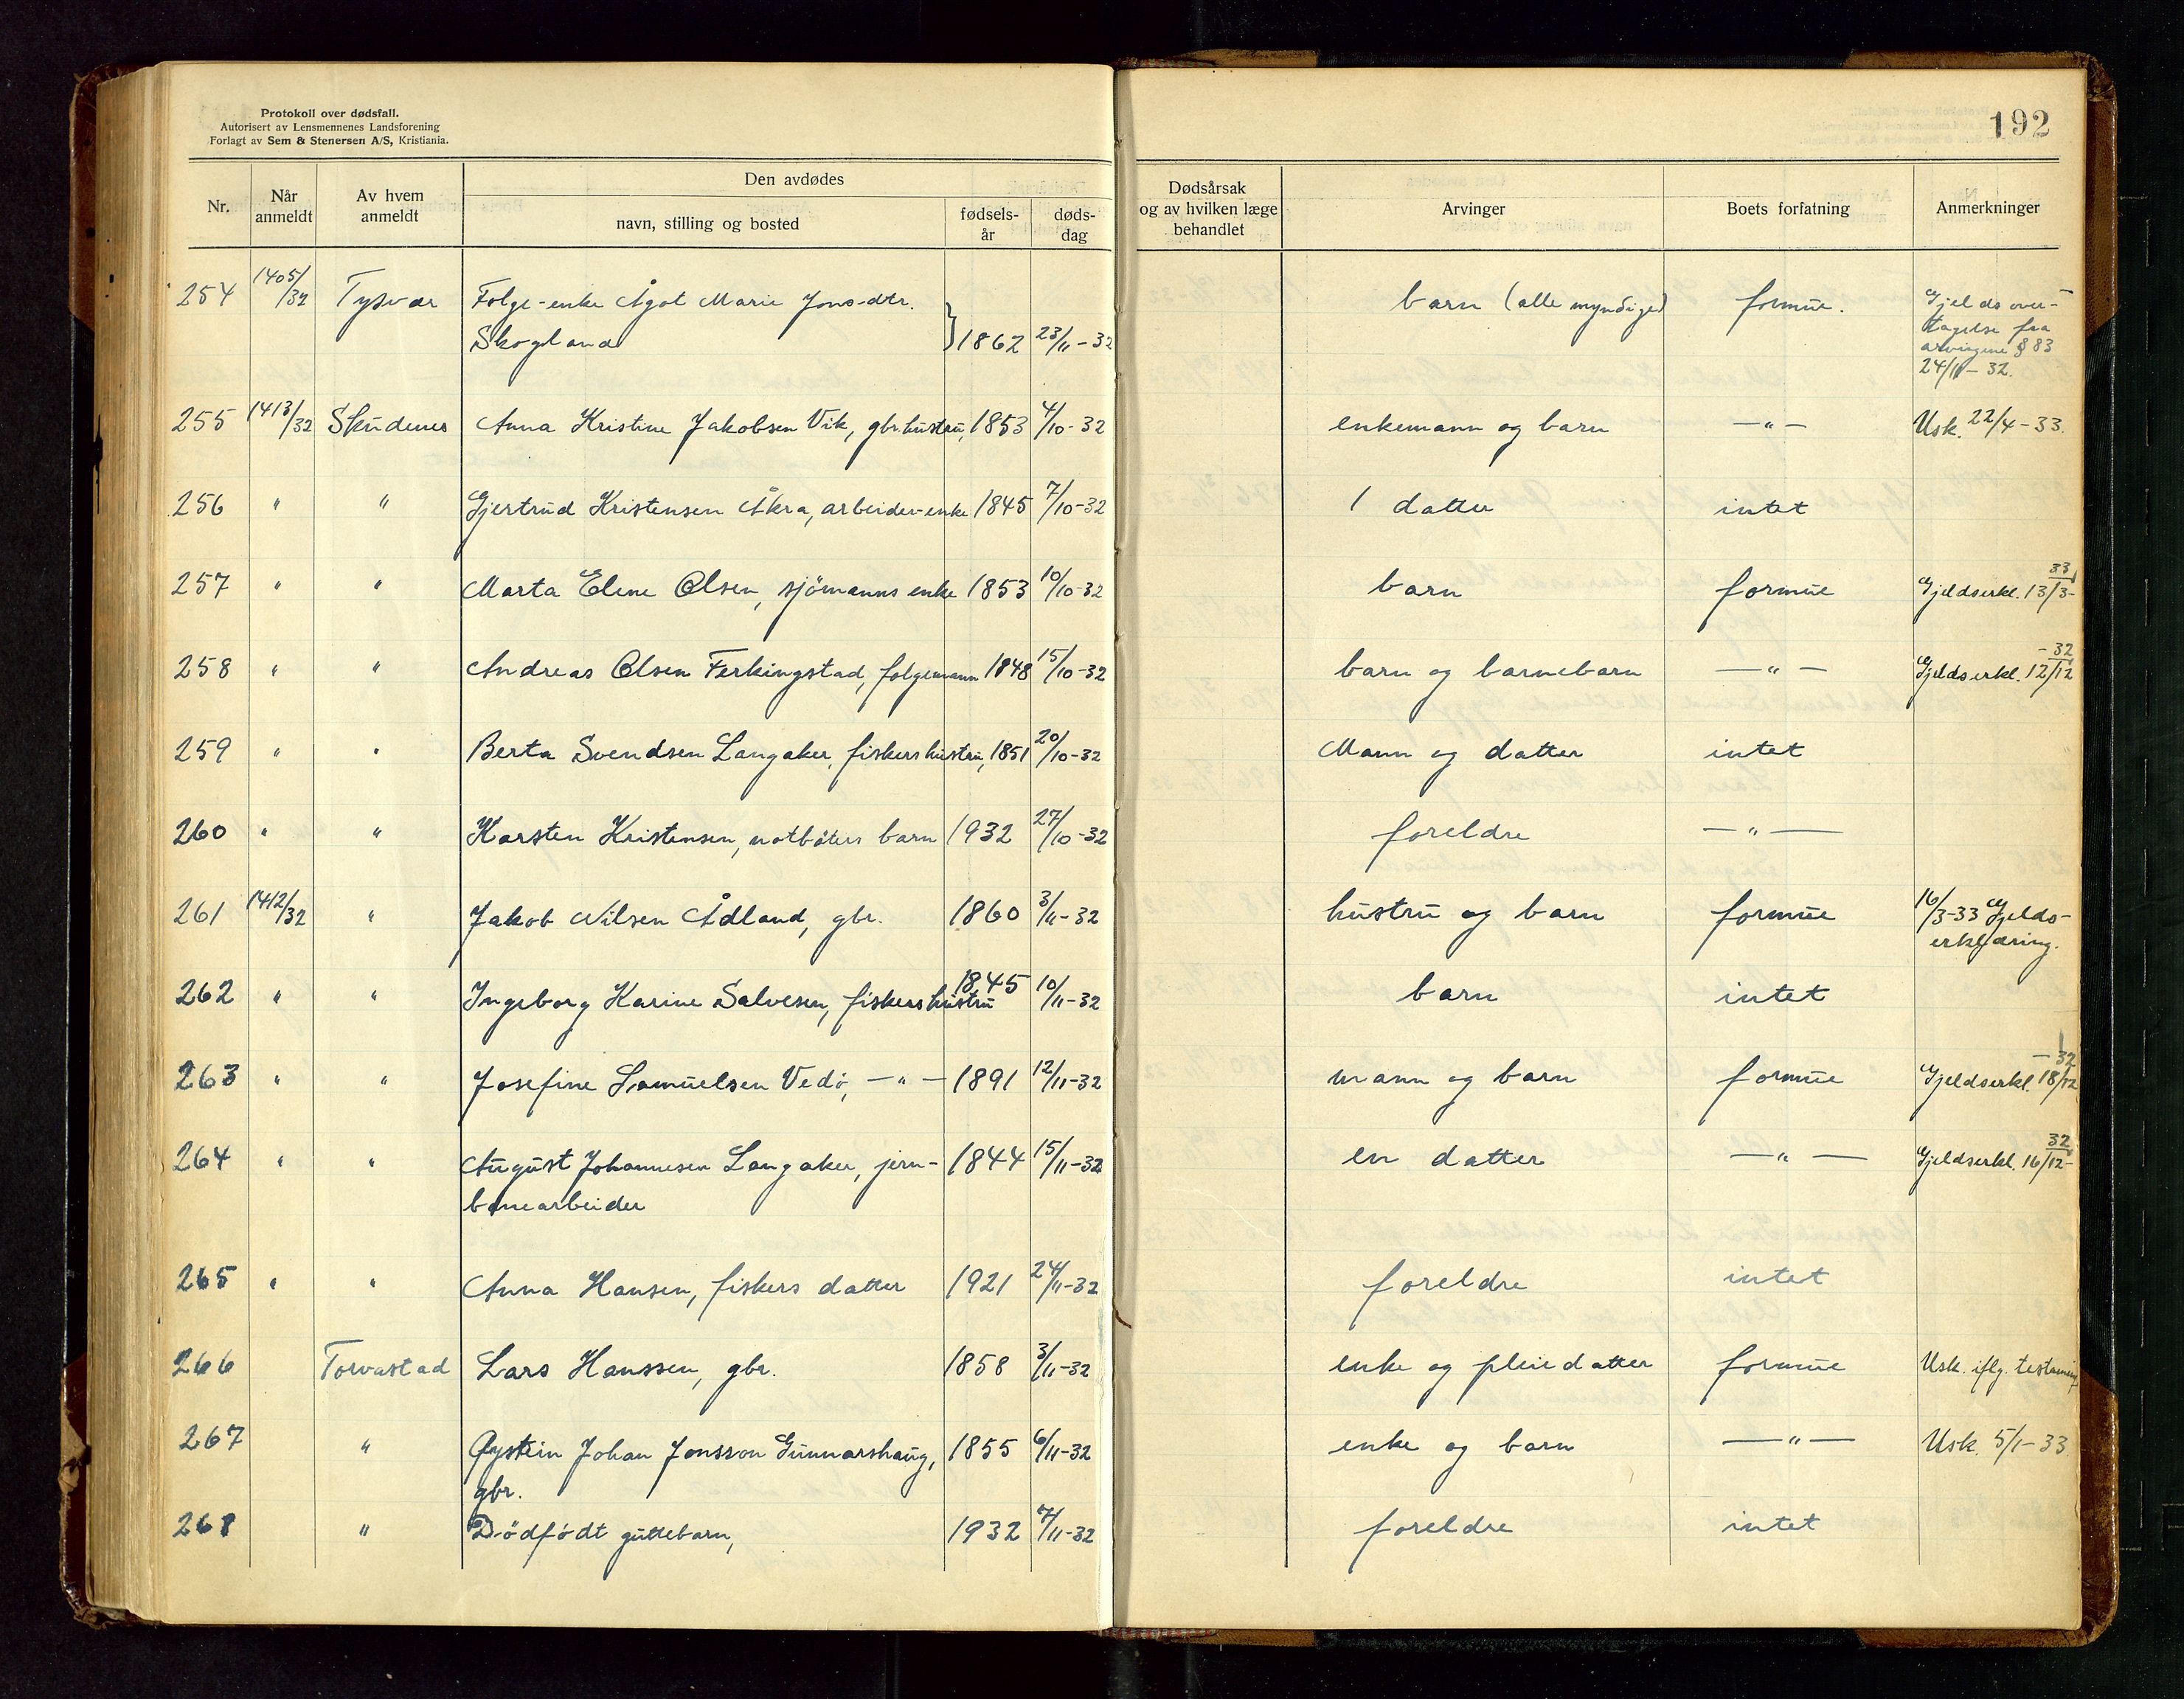 Protokoll over dødsfall.
Autorisert av Lensmennenes Landsforening
Forlagt av Sem & Stenersen A/S, Kristiania.
192
Nr. Når anmeldt Av hvem anmeldt Den avdødes navn, stilling og bosted fødsels-år døds-dag Dødsårsak og av hvilken læge behandlet Arvinger Boets forfatning Anmerkninger
254 1405/32 Tysvær Folge-enke Ågot Marie Jons-dtr. barn (alle myndige) formue. Gjeldsover-
Skogland } 1862 23/11-32 tagelse fra
arvingene § 83
24/11-32.
255 1413/32 Skudenes Anna Kristine Jakobsen Vik, gbr.hustru, 1853 4/10-32 enkemann og barn —"— Usk. 22/4-33.
256 " " Gjertrud Kristensen Åkra, arbeider-enke 1845 7/10-32 1 datter intet
257 " " Marta Elene Olsen, sjömanns enke 1853 10/10-32 barn formue Gjeldserkl. 13/3-33
258 " " Andreas Olsen Ferkingstad, folgemann 1848 15/10-32 barn og barnebarn —"— Gjeldserkl. 12/12-32
259 " " Berta Svendsen Langaker, fiskers hustru, 1851 20/10-32 Mann og datter intet
260 " " Karsten Kristensen, notbøters barn 1932 27/10-32 foreldre —"—
261 1412/32 " Jakob Nilsen Ådland, gbr. 1860 3/11-32 hustru og barn formue 16/3-33 Gjelds-
erklæring.
262 " " Ingeborg Karine Salvesen, fiskers hustru 1845 10/11-32 barn intet
263 " " Josefine Samuelsen Vedö, —"— 1891 12/11-32 mann og barn formue Gjeldserkl. 18/12-32
264 " " August Johannesen Langaker, jern- 1844 15/11-32 en datter —"— Gjeldserkl. 16/12-32
banearbeider
265 " " Anna Hansen, fiskers datter 1921 24/11-32 foreldre intet
266 Torvastad Lars Hanssen, gbr. 1858 3/11-32 enke og pleiedatter formue Usk. iflg.
267 " Øystein Johan Jonsson Gunnarshaug, 1855 6/11-32 enke og barn —"— Usk. 5/1-33.
gbr.
268 " Dödfödt guttebarn, 1932 7/11-32 foreldre intet